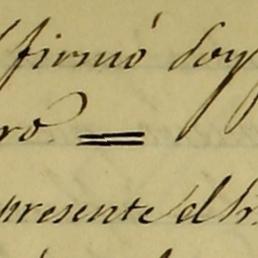 firmó Doy
ro. =
presente el Sr.